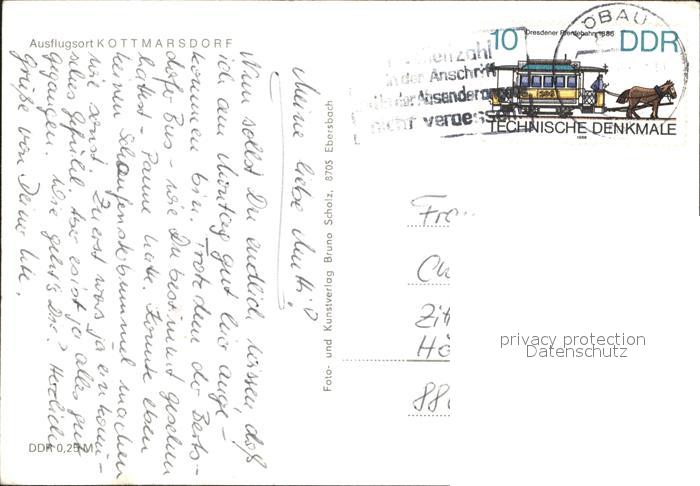 Ausflugsort KOTTMARSDORF
Meine liebe Mutti!
Nun sollst Du endlich wissen, daß
ich am Montag gut hier ange-
kommen bin. Trotzdem der Berts-
dorfer Bus - wie Du bestimmt gesehen
hattest - Panne hatte. Konnte eben
keinen Schaufensterbummel machen
wie sonst. Zuerst war ja ein komi-
sches Gefühl. Aber es ist ja alles gut
gegangen. Wie geht's Dir? Herzliche
Grüße von Deiner
DDR 0,25 M
Foto- und Kunstverlag Bruno Scholz, 8705 Ebersbach
ÖBAU
Dresdener Pferdebahn 1886
10 DDR
TECHNISCHE DENKMALE
1986
enzahl
in der Anschrift
in der Absenderangabe
nicht vergessen
Fra
Ch
Zit
Hä
88
privacy protection
Datenschutz